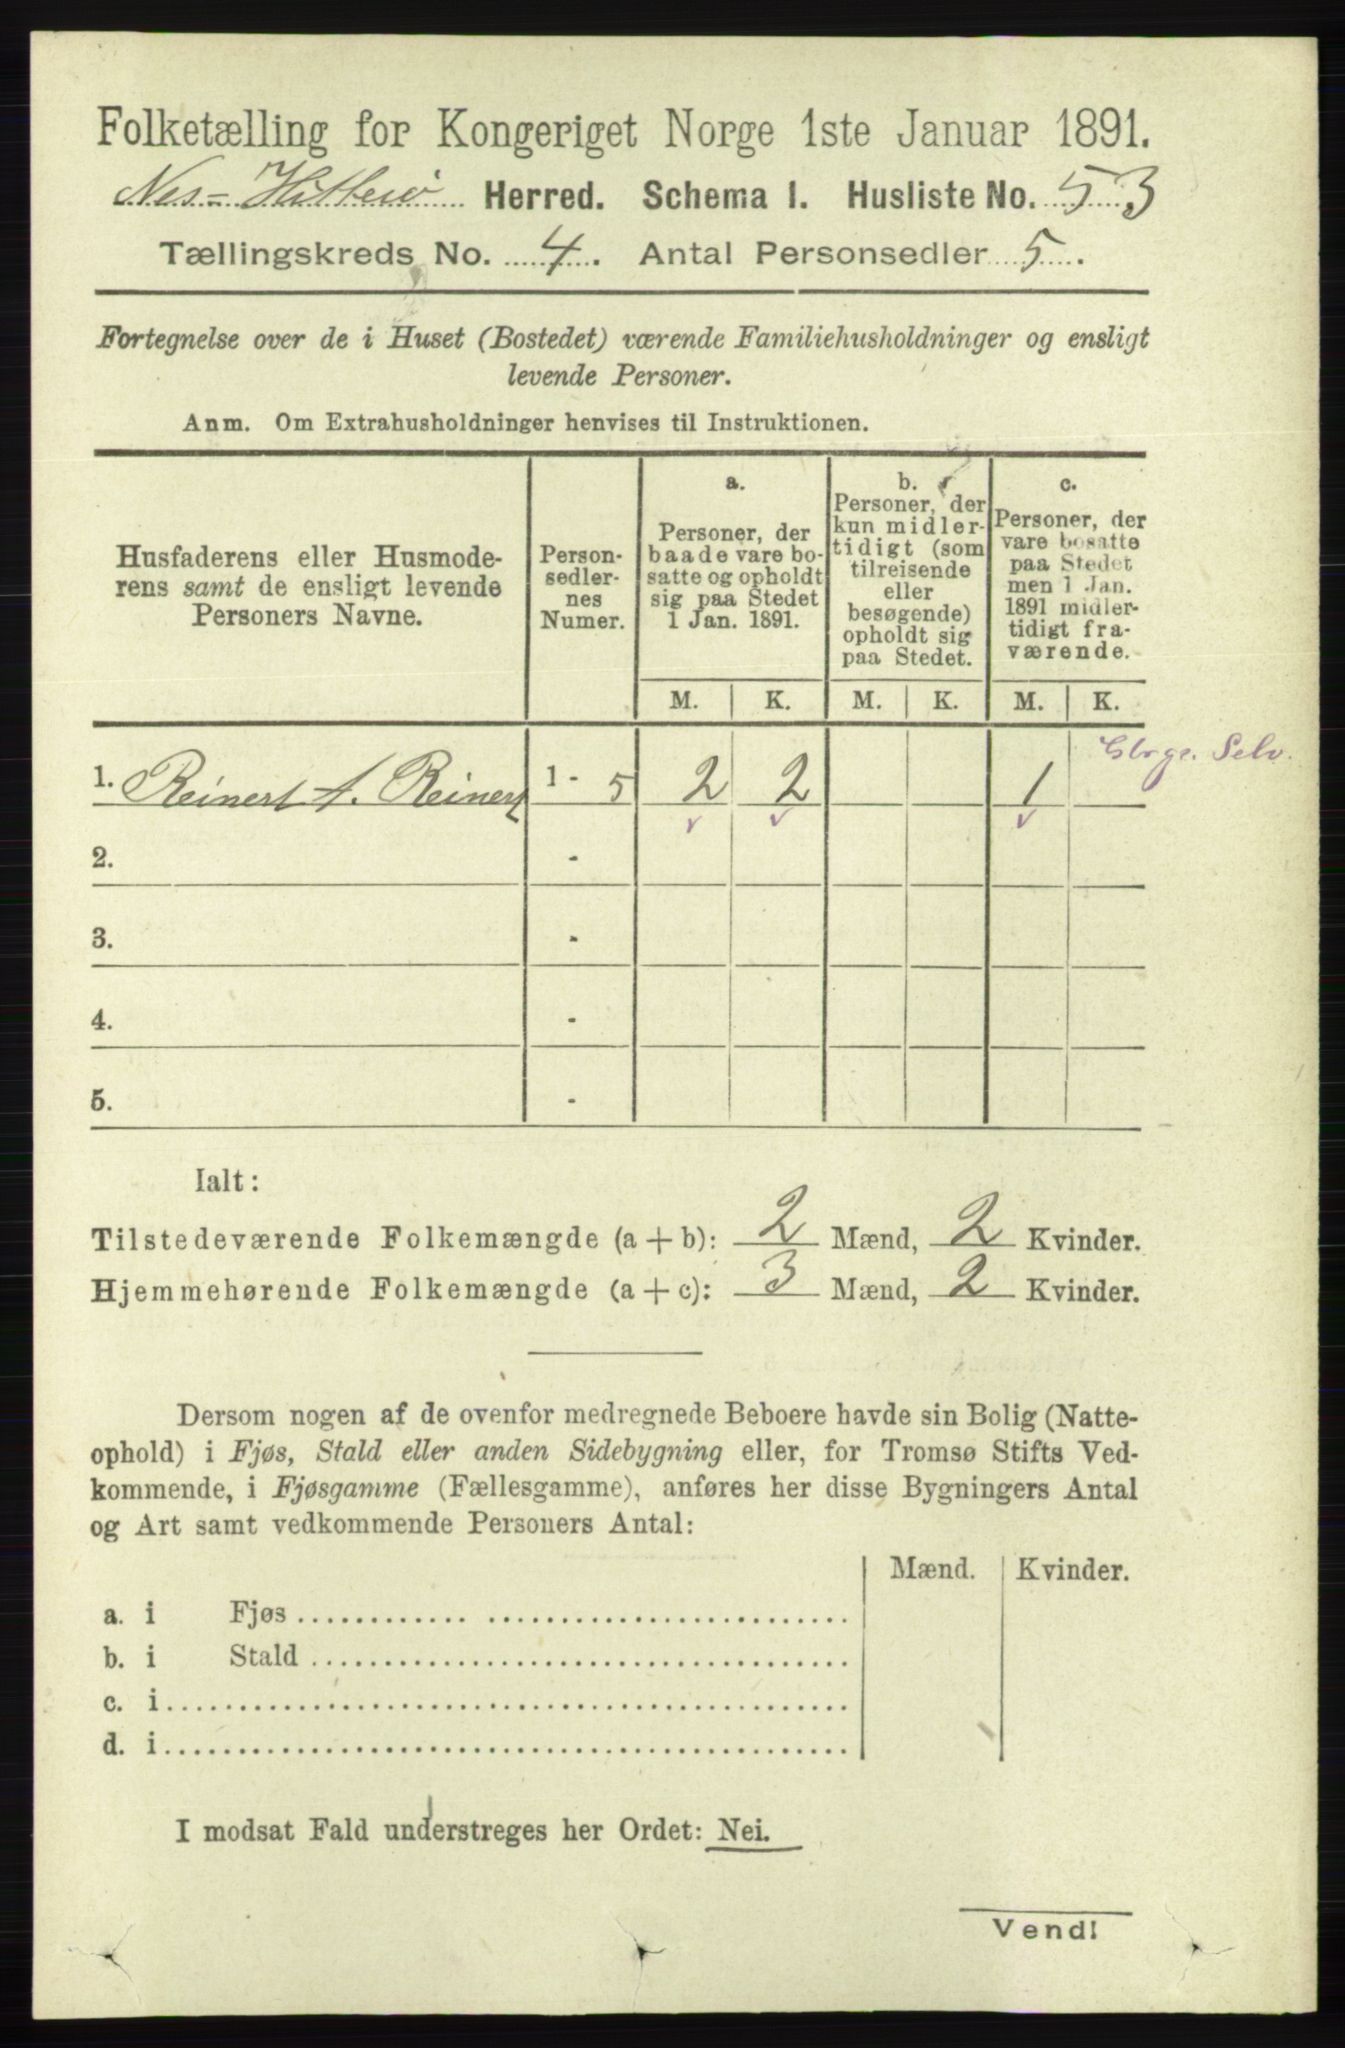 Folketælling for Kongeriget Norge 1ste Januar 1891.
Nes-Hitterø Herred. Schema I. Husliste No. 53
Tællingskreds No. 4. Antal Personsedler 5.
Fortegnelse over de i Huset (Bostedet) værende Familiehusholdninger og ensligt
levende Personer.
Anm. Om Extrahusholdninger henvises til Instruktionen.
Husfaderens eller Husmode-
rens samt de ensligt levende
Personers Navne.
Person-
sedler-
nes
Numer.
a.
Personer, der
baade vare bo-
satte og opholdt
sig paa Stedet
1 Jan. 1891.
b.
Personer, der
kun midler-
tidigt (som
tilreisende
eller
besøgende)
opholdt sig
paa Stedet.
c.
Personer, der
vare bosatte
paa Stedet
men 1 Jan.
1891 midler-
tidigt fra-
værende.
M. K. M. K. M. K.
1. Reinert A. Reinert 1 - 5 2 2 1 Selv.
2. -
3. -
4. -
5. -
Ialt:
Tilstedeværende Folkemængde (a + b): 2 Mænd, 2 Kvinder.
Hjemmehørende Folkemængde (a + c): 3 Mænd, 2 Kvinder.
Dersom nogen af de ovenfor medregnede Beboere havde sin Bolig (Natte-
ophold) i Fjøs, Stald eller anden Sidebygning eller, for Tromsø Stifts Ved-
kommende, i Fjøsgamme (Fællesgamme), anføres her disse Bygningers Antal
og Art samt vedkommende Personers Antal:
Mænd. Kvinder.
a. i Fjøs
b. i Stald
c. i
d. i
I modsat Fald understreges her Ordet: Nei.
Vend!